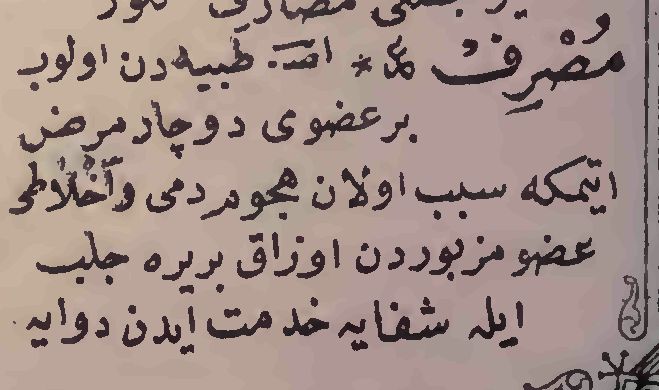 مُصْرِفْ ﻋ * اصـ. طبيه دن اولوب
بر عضوى دوچار مرض
ايتمكه سبب اولان هجوم دمى واَخْلَاطى
عضو مزبوردن اوزاق بر يره جلب
ايله شفايه خدمت ايدن دوايه